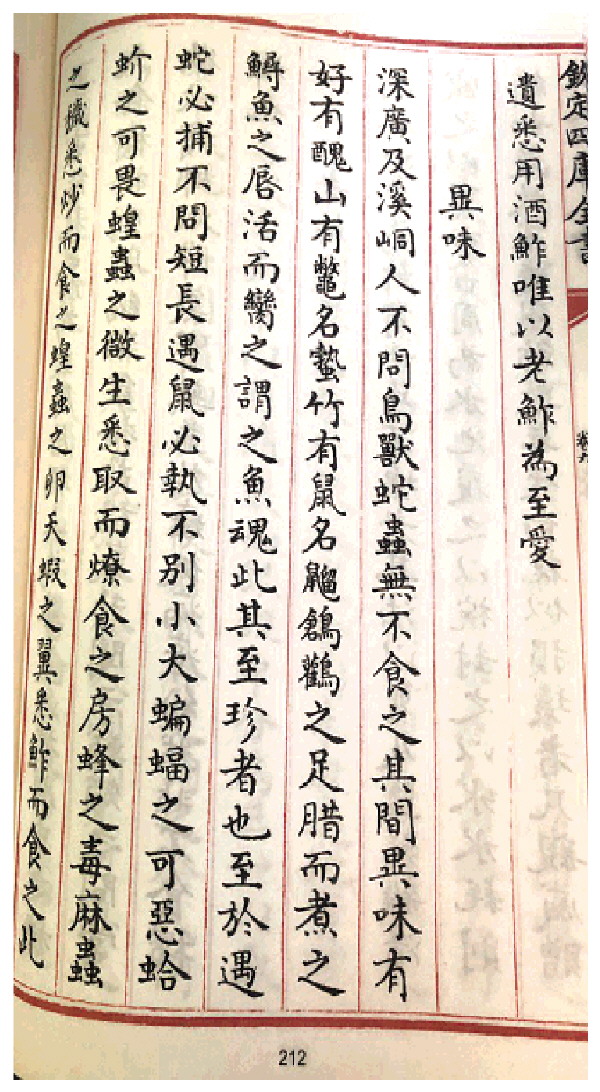 欽定四庫全書
卷六
遺悉用酒鮓唯以老鮓為至愛
異味
深廣及溪峒人不問鳥獸蛇蟲無不食之其間異味有
好有醜山有鼈名蟄竹有鼠名䶉鶬鸛之足腊而煮之
鱘魚之唇活而臠之謂之魚魂此其至珍者也至於遇
蛇必捕不問短長遇鼠必執不別小大蝙蝠之可惡蛤
蚧之可畏蝗蟲之微生悉取而燎食之房蜂之毒麻蟲
之穢悉炒而食之蝗蟲之卵天蝦之翼悉鮓而食之此
212